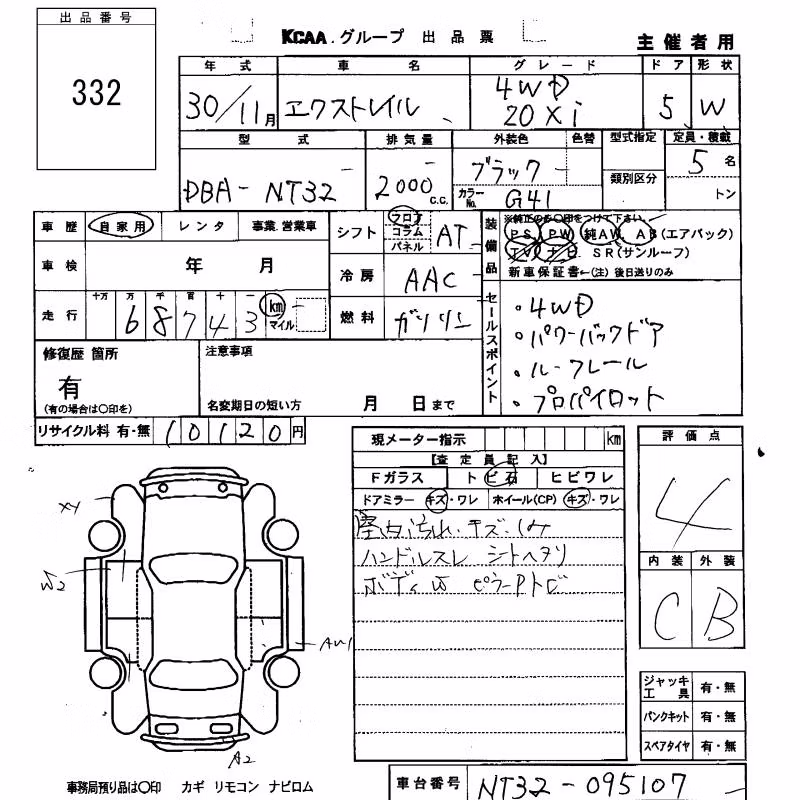 出品番号
332
KCAA.グループ 出品票
主催者用
年式 車名 グレード ドア 形状
30/11月 エクストレイル 4WD 20Xi 5 W
型式 排気量 外装色 色替 型式指定 定員・積載
DBA-NT32 2000 c.c. ブラック 類別区分 5名
カラーNo. G41 トン
車歴 自家用 レンタ 事業.営業車
シフト フロア コラム パネル AT
装備品 ※純正のみ○印をつけて下さい。
PS PW 純AW. AB(エアバック)
TV ナビ. SR(サンルーフ)
新車保証書←(注)後日送りのみ
車検 年 月
冷房 AAC
走行 十万 万 千 百 十 一 km マイル
68743
燃料 ガソリン
セールスポイント
・4WD
・パワーバックドア
・ルーフレール
・プロパイロット
修復歴 箇所
有
(有の場合は○印を)
注意事項
名変期日の短い方 月 日まで
リサイクル料 有・無 10120円
現メーター指示 km
【査定員記入】
Fガラス トビ石 ヒビワレ
ドアミラー キズ・ワレ ホイール(CP) キズ・ワレ
室内汚れ・キズ・シミ
ハンドルスレ シートヘタリ
ボディW ピラーPトビ
評価点
4
内装 外装
C B
XY
W2
AW1
A2
ジャッキ工具 有・無
パンクキット 有・無
スペアタイヤ 有・無
事務局預り品は○印 カギ リモコン ナビロム
車台番号 NT32-095107